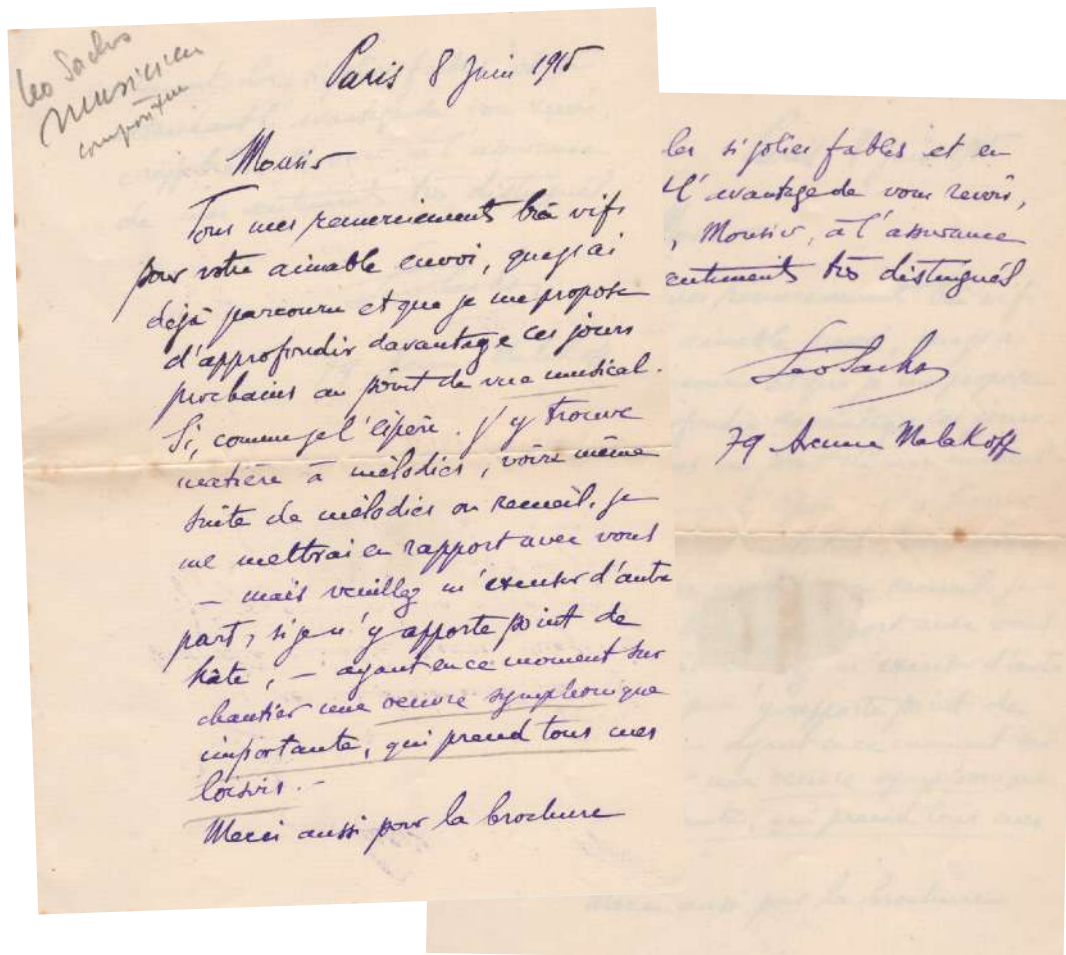 Leo Sachs
musicien
compositeur
Paris 8 Juin 1915
Monsieur
Tous mes remerciements très vifs
pour votre aimable envoi, que j'ai
déjà parcouru et que je me propose
d'approfondir davantage ces jours
prochains au point de vue musical.
Si, comme je l'espère. j'y trouve
matière à mélodies, voire même
suite de mélodies ou recueil, je
me mettrai en rapport avec vous
— mais veuillez m'excuser d'autre
part, si je n'y apporte point de
hâte, — ayant en ce moment sur
chantier une oeuvre symphonique
importante, qui prend tous mes
loisirs. —
Merci aussi pour la brochure
les si jolies fables et en
l'avantage de vous revoir,
, Monsieur, à l'assurance
entiments très distingués
Léo Sachs
79 Avenue Malakoff